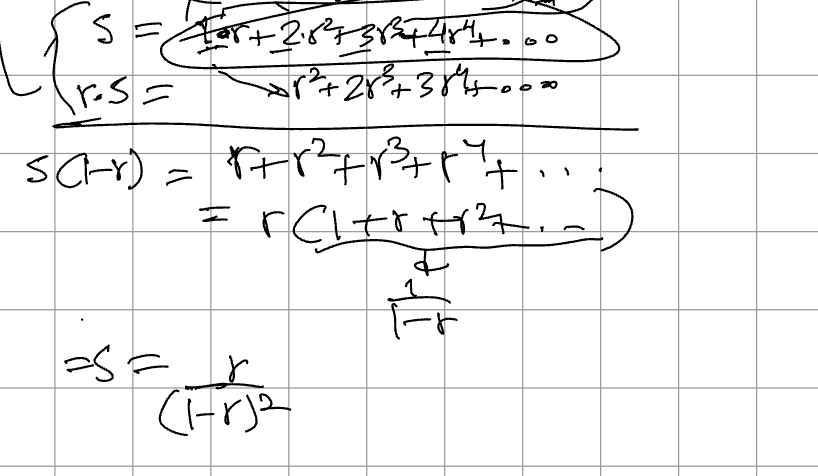 S = 1·r + 2·r² + 3r³ + 4r⁴ + ...
r·S = r² + 2r³ + 3r⁴ + ...
S(1-r) = r + r² + r³ + r⁴ + ...
= r(1 + r + r² + ...)
1/(1-r)
=S = r/(1-r)²